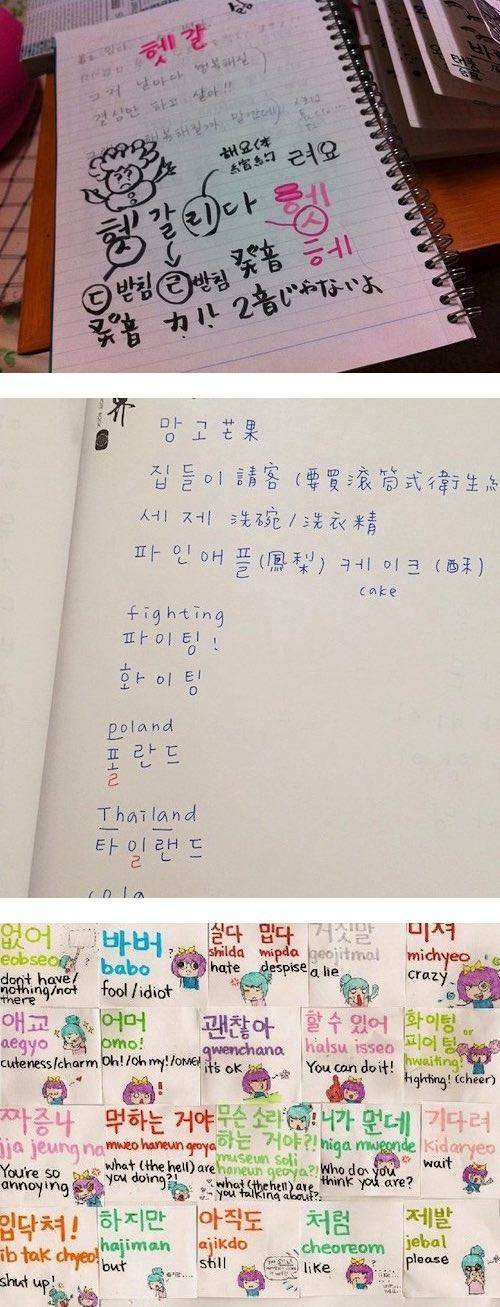 헷갈
그저 날마다 행복해질
결심만 하고 살아!!
해요体
縮約 려요
헷갈리다 헷
헤
ㄷ받침 ㄹ받침 발音
2音じゃないよ
망고 芒果
집들이 請客 (要買滾筒式衛生紙
세제 洗碗/洗衣精
파인애플(鳳梨) 케이크 (酥)
cake
fighting
파이팅!
화이팅
poland
폴란드
ㄹ
Thailand
타일랜드
ㄹ
cola
없어 바버 싫다 밉다 거짓말 미쳐
eobseo babo shilda mipda geojitmal michyeo
dont have/ fool/idiot hate despise a lie crazy
nothing/not
there
애교 어머 괜찮아 할 수 있어 화이팅 or
피이팅
aegyo omo! gwenchana halsu isseo hwaiting!
cuteness/charm Oh!/Oh my!/OMG! it's ok You can do it! fighting! (cheer)
짜증나 뭑하는 거야 무슨 소리 니가 뭔데 기다려
하는 거야?!
jja jeung na mweo haneun geoya museun soli niga mweonde kidaryeo
haneun geoya?!
You're so what (the hell) are what (the hell) are Who do you wait
annoying you doing?! you talking about?! think you are?
입닥쳐! 하지만 아직도 처럼 제발
ib tak chyeo! hajiman ajikdo cheoreom jebal
shut up! but still like please